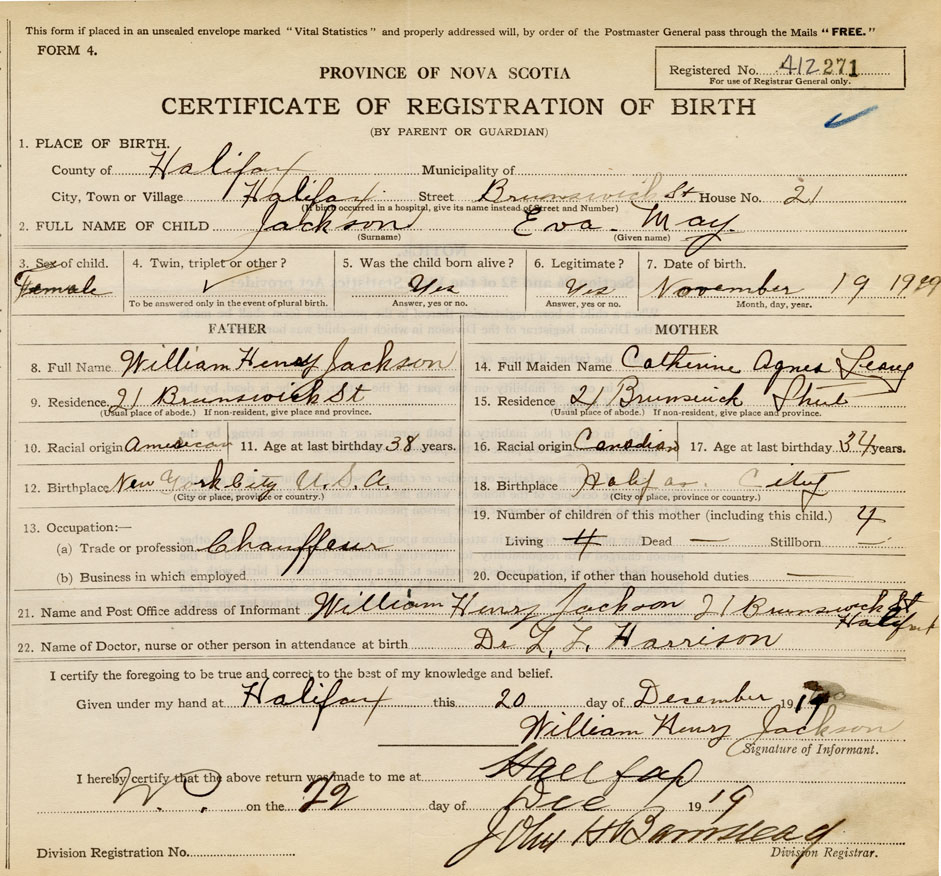 This form if placed in an unsealed envelope marked "Vital Statistics" and properly addressed will, by order of the Postmaster General pass through the Mails "FREE."
FORM 4.
Registered No. 412271
For use of Registrar General only.
PROVINCE OF NOVA SCOTIA
CERTIFICATE OF REGISTRATION OF BIRTH
(BY PARENT OR GUARDIAN)
1. PLACE OF BIRTH.
County of Halifax Municipality of
City, Town or Village Halifax Street Brunswick St House No. 21
(If birth occurred in a hospital, give its name instead of Street and Number)
2. FULL NAME OF CHILD Jackson Eva May.
(Surname) (Given name)
3. Sex of child. 4. Twin, triplet or other? 5. Was the child born alive? 6. Legitimate? 7. Date of birth.
Female Yes Yes November 19 1919
To be answered only in the event of plural birth. Answer, yes or no. Answer, yes or no. Month, day, year.
FATHER MOTHER
8. Full Name William Henry Jackson 14. Full Maiden Name Catherine Agnes
9. Residence 21 Brunswick St 15. Residence 21 Brunswick Street
(Usual place of abode.) If non-resident, give place and province. (Usual place of abode.) If non-resident, give place and province.
10. Racial origin American 11. Age at last birthday 38 years. 16. Racial origin Canadian 17. Age at last birthday 34 years.
12. Birthplace New York City U.S.A. 18. Birthplace Halifax. City
(City or place, province or country.) (City or place, province or country.)
13. Occupation:— 19. Number of children of this mother (including this child.) 4
(a) Trade or profession Chauffeur Living 4 Dead — Stillborn —
(b) Business in which employed 20. Occupation, if other than household duties —
21. Name and Post Office address of Informant William Henry Jackson 21 Brunswick St Halifax
22. Name of Doctor, nurse or other person in attendance at birth Dr L. F. Harrison
I certify the foregoing to be true and correct to the best of my knowledge and belief.
Given under my hand at Halifax this 20 day of December 1919
William Henry Jackson
Signature of Informant.
I hereby certify that the above return was made to me at Halifax
on the 22 day of Dec 1919
John H Barnstead
Division Registration No. Division Registrar.